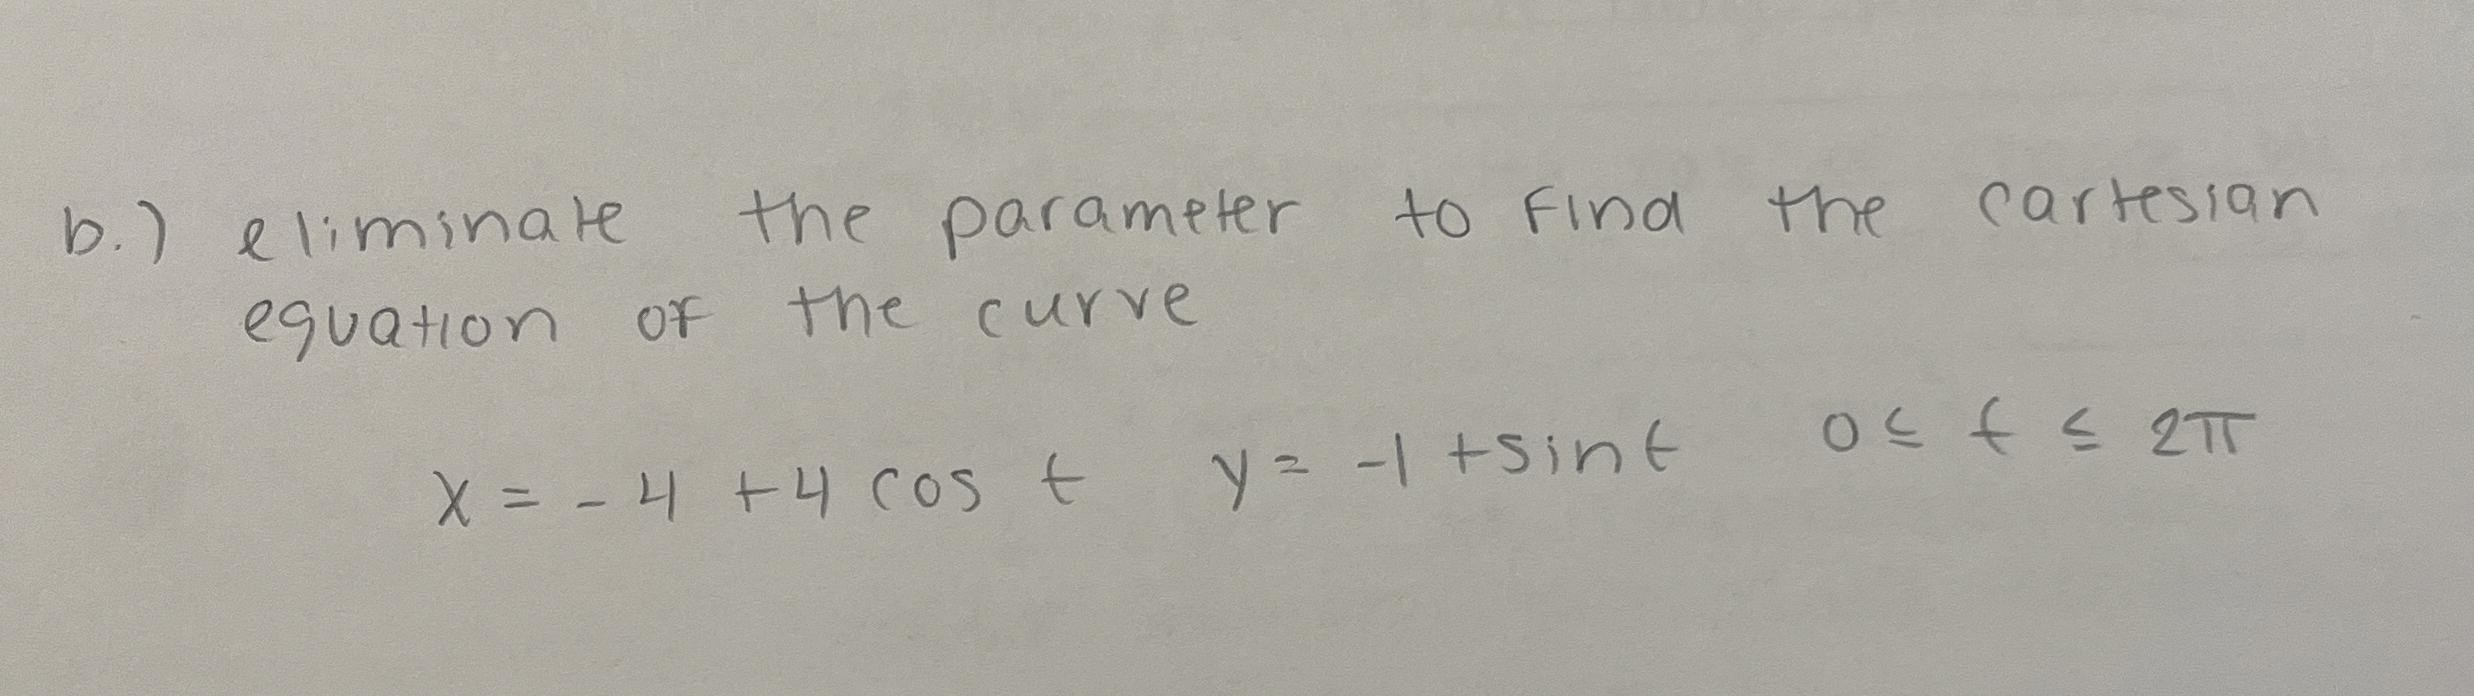 b.) eliminate the parameter to find the cartesian
equation of the curve
x = -4 +4 cos t y = -1 +sint 0 ≤ t ≤ 2π